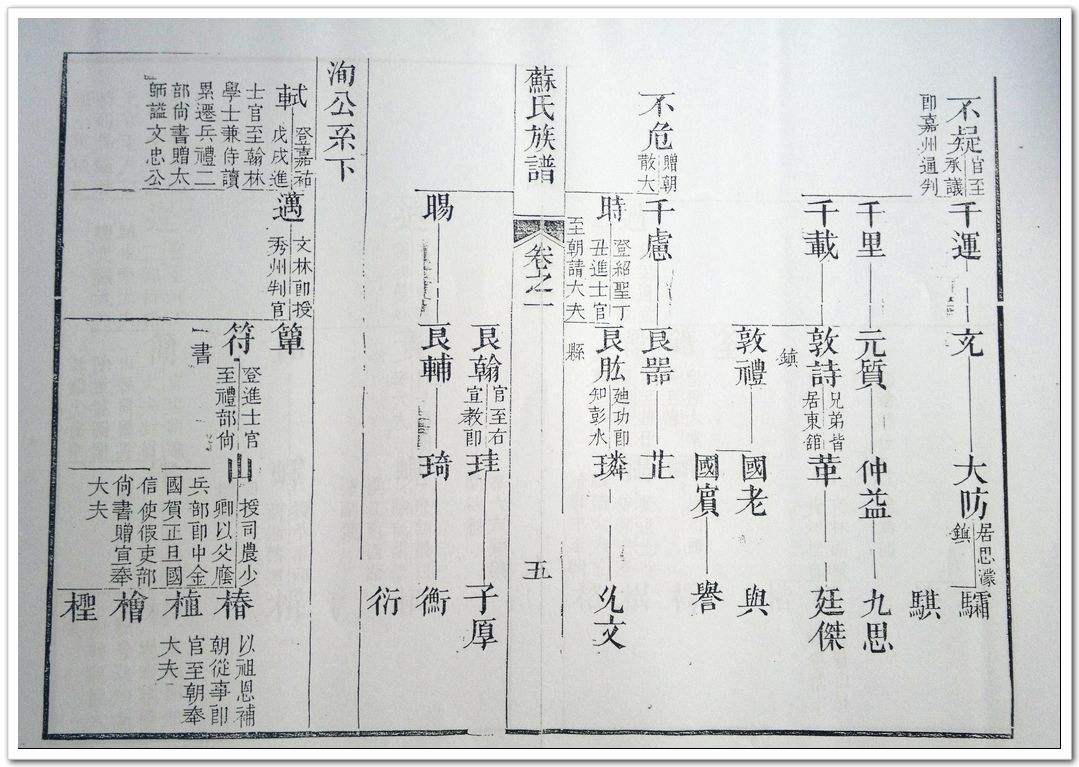 不疑
官至
承議
郎嘉州通判
千運
充
大防
居思濛
鎮
驌
騏
千里
元質
仲益
九思
千載
敦詩
兄弟皆
居東舘
鎮
革
廷傑
敦禮
國老
與
國賓
譽
不危
贈朝
散大
千慮
良器
芷
時
登紹聖丁
丑進士官
至朝請大夫
良肱
廸功郎
知彭水
縣
璘
允文
蘇氏族譜
卷之一
五
良翰
官至右
宣教郎
珪
子厚
暘
良輔
琦
衡
衍
洵公系下
軾
登嘉祐
戊戌進
士官至翰林
學士兼侍讀
累遷兵禮二
部尙書贈太
師謚文忠公
邁
文林郎授
秀州判官
簞
符
登進士官
至禮部尙
書
山
授司農少
卿以父廕
兵部郎中金
國賀正旦國
信使假吏部
尙書贈宣奉
大夫
椿
以祖恩補
朝從事郎
官至朝奉
大夫
植
檜
檉